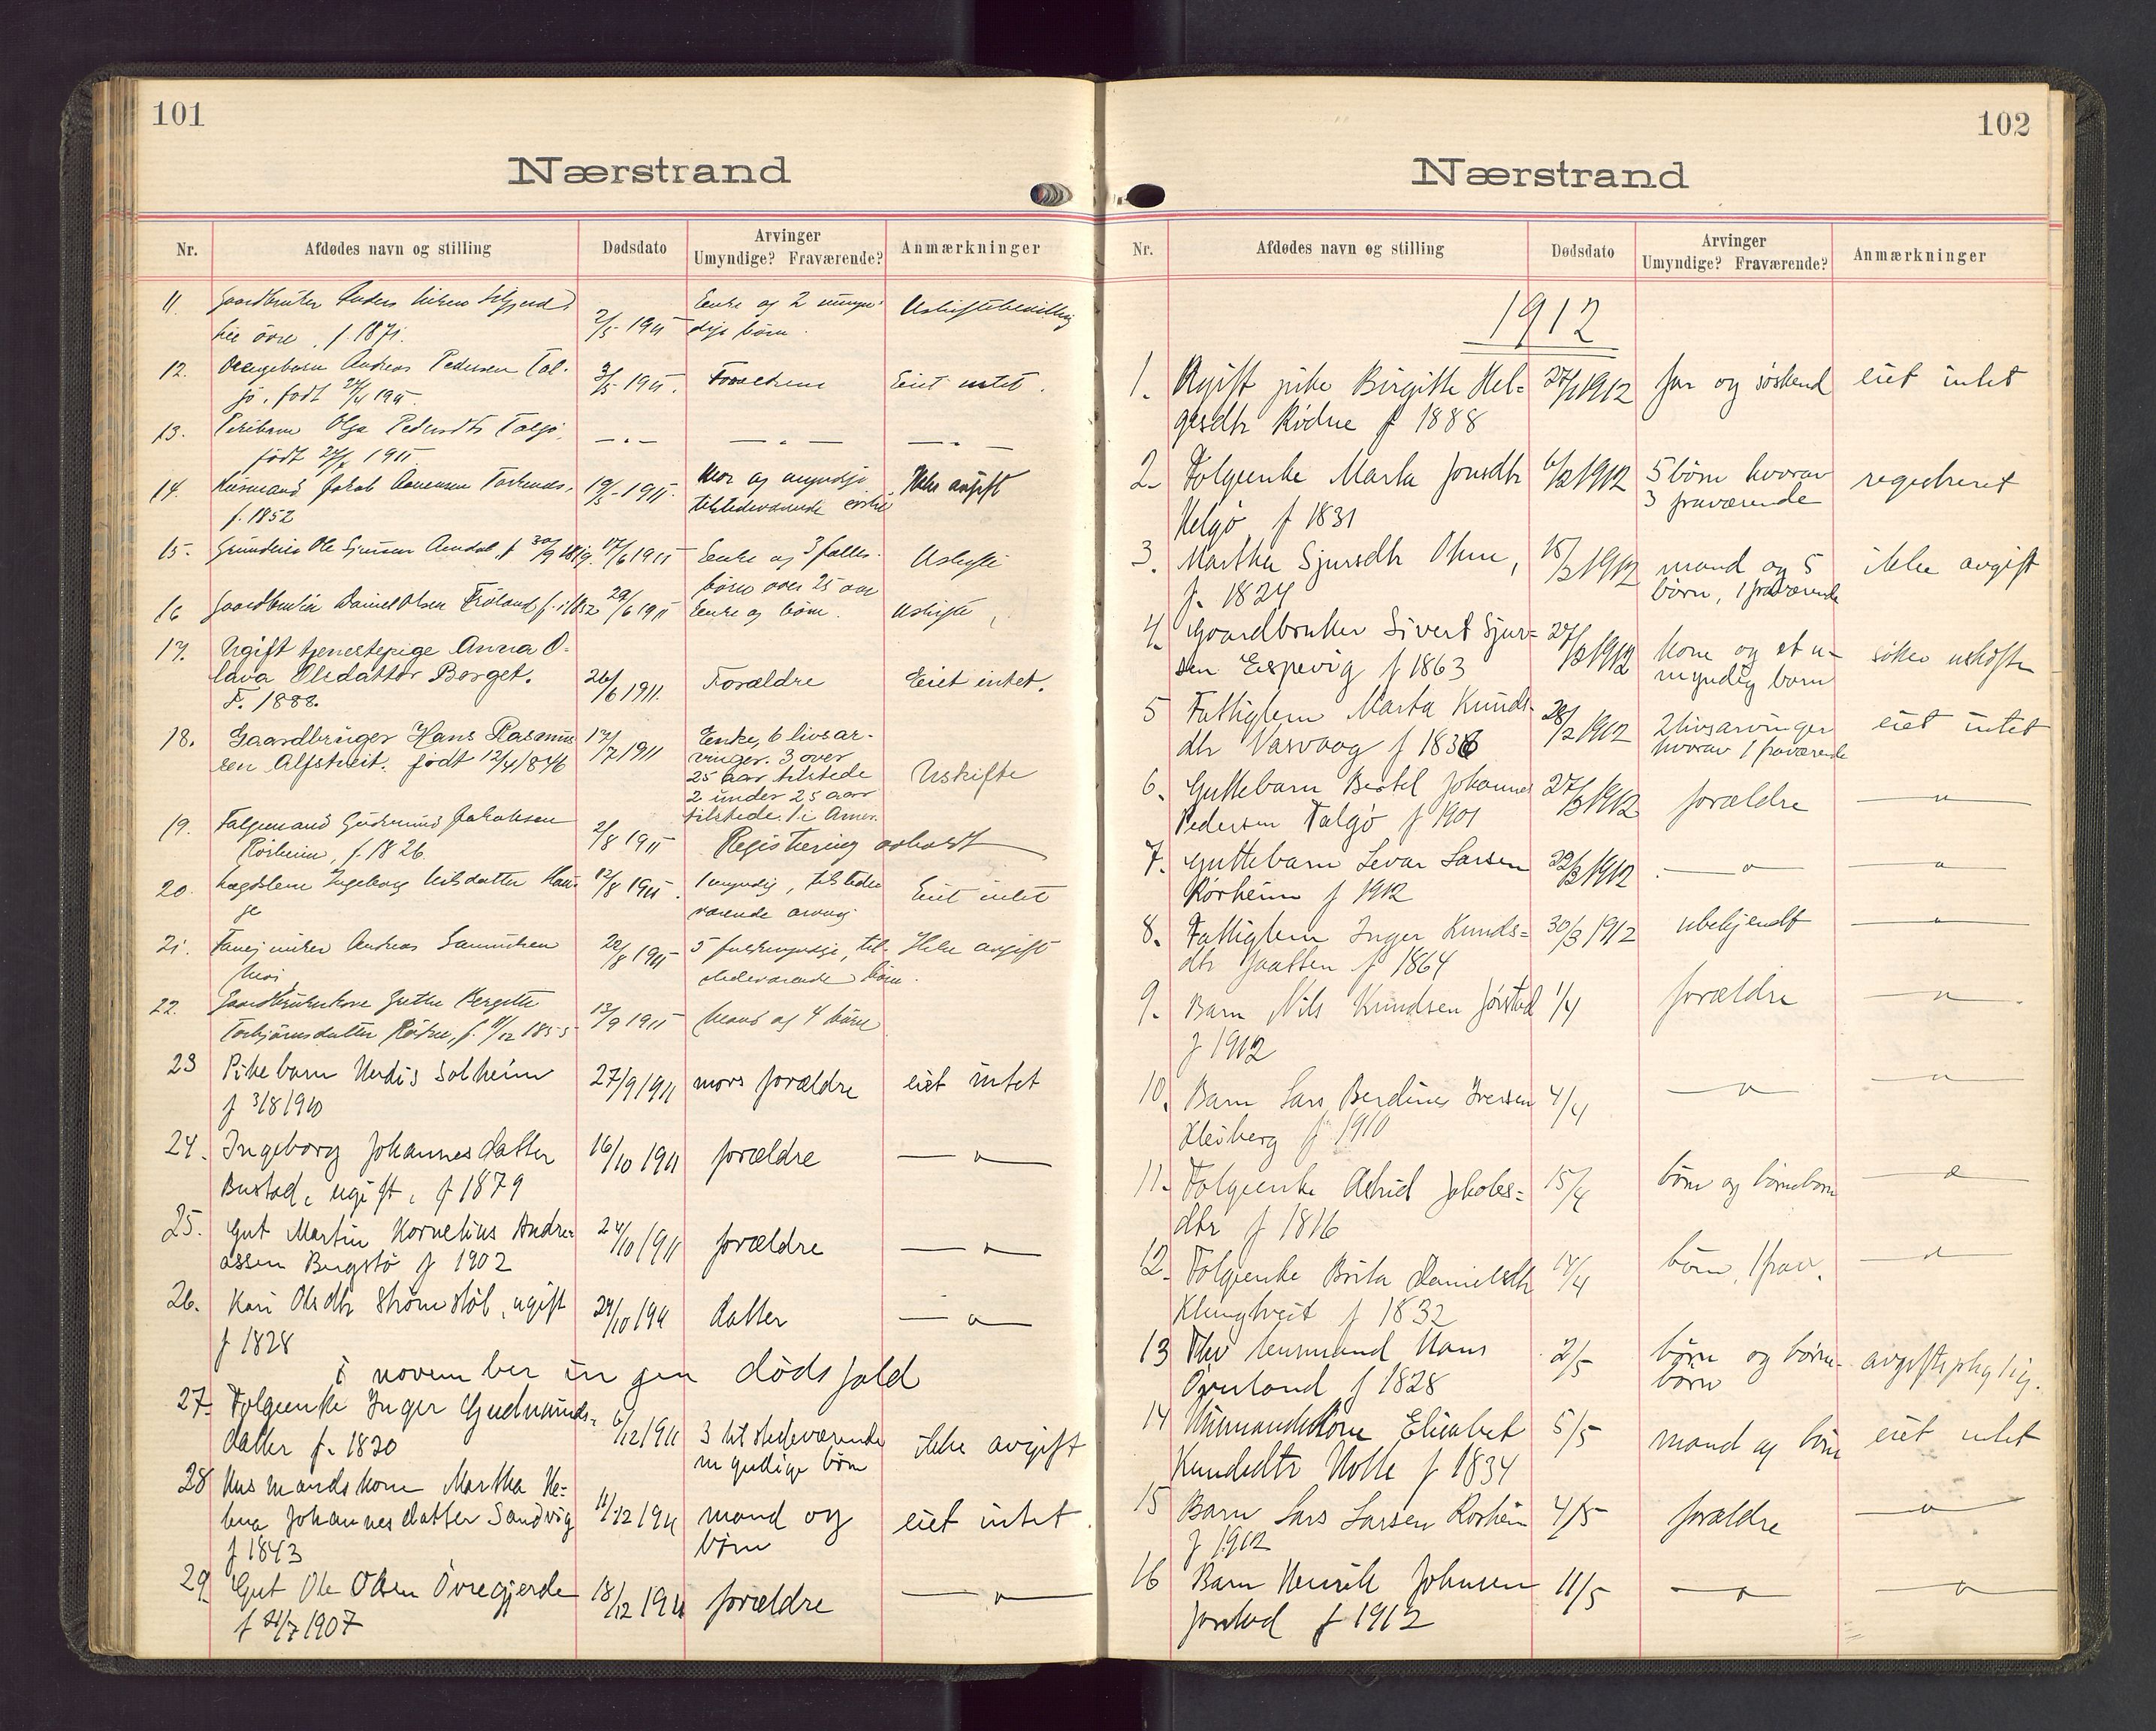 101
Nærstrand
Nr. Afdødes navn og stilling Dødsdato Arvinger Umyndige? Fraværende? Anmærkninger
11. Gaardbruker Anders
øvre, f. 1871. 2/5 1911 Enke og 2 umyn-
dige børn. Uskiftebevilling
12. Andreas Pedersen Tal-
gø, født 1911. 3/5 1911. Forældrene Eiet intet.
13. Pikebarn Olga Pedersdtr Talgø,
født 1911 — " — — " — — " —
14. Husmand Jakob
f. 1852 19/5 1911. Mor og myndige
tilstedeværende Ikke avgift
15. Ole 17/6 1911 Enke og 3 fælles-
børn over 25 aar Uskifte
16 Gaardbruker Daniel Olsen Frøland f. 1852 29/6 1911 Enke og børn. Uskifte
17. Ugift tjenestepige Anna O-
lava Olsdatter Borget.
F. 1888. 26/6 1911. Forældre Eiet intet.
18. Gaardbruger Hans Rasmus
sen Alfstveit. født 12/4 1846 17/7 1911 Enke, 6 livsar-
vinger. 3 over
25 aar tilstede
2 under 25 aar
tilstede. 1 i Amer. Uskifte
19. Følgemand Gudmund Jakobsen
Rørheim, f. 1826. 2/8 1911 Registrering avholdt
20. Lægdslem Ingeborg Nilsdatter Hau-
ge 12/8 1911. 1 myndig, tilstede
værende arving Eiet intet
21. Andreas Samuelsen
22/8 1911 5 fuldmyndige, til-
stedeværende børn. Ikke avgift
22. Gaardbrukerkone Grethe Bergitte
Torbjørnsdatter f. 11/12 1855 13/9 1911 Mand og 4 børn
23 Pikebarn Herdis Solheim
f 3/8 1910 27/9 1911 mors forældre eiet intet
24. Ingeborg Johannesdatter
Bustad, ugift, f 1879 16/10 1911 forældre — " —
25. Gut Martin Kornelius Andre-
assen Bugstø f 1902 24/10 1911 forældre — " —
26. Kari Olsdtr Strømstøl, ugift
f 1828 29/10 1911 datter — " —
i november ingen dødsfald
27. Følgeenke Inger Gudmunds-
datter f. 1820 6/12 1911 3 tilstedeværende
myndige børn ikke avgift
28 Husmandskone Martha He-
lena Johannesdatter Sandvig
f 1843 11/12 1911 mand og
børn eiet intet.
29. Gut Ole Olsen Øvregjerde
f 21/7 1907 18/12 1911 forældre — " —
102
Nærstrand
Nr. Afdødes navn og stilling Dødsdato Arvinger Umyndige? Fraværende? Anmærkninger
1912
1. Ugift pike Birgitte Hel-
gesdtr Rødne f 1888 27/1 1912 far og søskend eiet intet
2. Følgeenke Marta Jonsdtr
Helgø f 1831 6/2 1912 5 børn hvorav
3 fraværende registreret
3. Martha Sjursdtr Ohm,
f. 1824 15/2 1912 mand og 5
børn, 1 fraværende ikke avgift
4. Gaardbruker Sivert Sjur-
sen Espevig f 1863 27/2 1912 kone og et u-
myndig barn søker uskifte
5 Fattiglem Marta Knuds-
dtr Vasvaag f 1836 28/2 1912 2 livsarvinger
hvorav 1 fraværende eiet intet
6. Guttebarn Bertel Johannes
Pedersen Talgø f 1901 27/3 1912 forældre — " —
7. Guttebarn Sevar Larsen
Rørheim f 1912 22/3 1912 — " — — " —
8. Fattiglem Inger Knuds-
dtr Jaatten f 1864 30/3 1912 ubekjendt — " —
9. Barn Nils Knudsen Jørstad
f 1912 1/4 forældre — " —
10. Barn Lars Berdines Iversen
Heiberg f 1910 4/4 — " — — " —
11. Følgeenke Astrid Jakobs-
dtr f 1816 15/4 børn og børnebørn — " —
12. Følgeenke Brita Danielsdtr
Klungtveit f 1832 17/4 børn, 1 frav. — " —
13 Husmand Hans
Øverland f 1828 2/5 børn og børne-
børn avgiftspligtig.
14 Husmandskone Elisabet
Knudsdtr Holle f 1834 5/5 mand og børn eiet intet
15 Barn Lars Larsen Rørheim
f 1912 4/5 forældre — " —
16 Barn Henrik Johnsen
Jørstad f 1912 11/5 — " — — " —